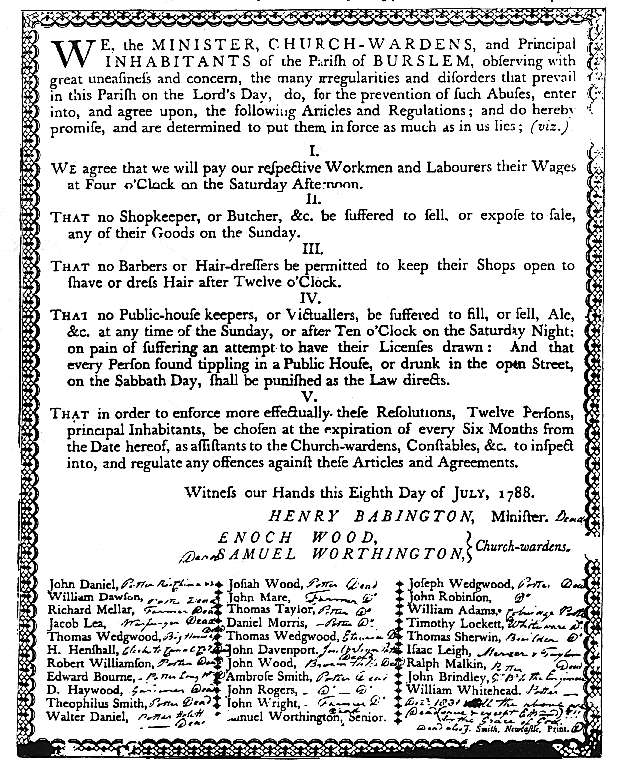 WE, the MINISTER, CHURCH-WARDENS, and Principal
INHABITANTS of the Pariſh of BURSLEM, obſerving with
great uneaſineſs and concern, the many irregularities and diſorders that prevail
in this Pariſh on the Lord's Day, do, for the prevention of ſuch Abuſes, enter
into, and agree upon, the following Articles and Regulations; and do hereby
promiſe, and are determined to put them in force as much as in us lies; (viz.)
I.
WE agree that we will pay our reſpective Workmen and Labourers their Wages
at Four o'Clock on the Saturday Afternoon.
II.
THAT no Shopkeeper, or Butcher, &c. be ſuffered to ſell, or expoſe to ſale,
any of their Goods on the Sunday.
III.
THAT no Barbers or Hair-dreſſers be permitted to keep their Shops open to
ſhave or dreſs Hair after Twelve o'Clock.
IV.
THAT no Public-houſe keepers, or Victuallers, be ſuffered to fill, or ſell, Ale,
&c. at any time of the Sunday, or after Ten o'Clock on the Saturday Night;
on pain of ſuffering an attempt to have their Licenſes drawn: And that
every Perſon found tippling in a Public Houſe, or drunk in the open Street,
on the Sabbath Day, ſhall be puniſhed as the Law directs.
V.
THAT in order to enforce more effectually theſe Reſolutions, Twelve Perſons,
principal Inhabitants, be choſen at the expiration of every Six Months from
the Date hereof, as aſſiſtants to the Church-wardens, Conſtables, &c. to inſpect
into, and regulate any offences againſt theſe Articles and Agreements.
Witneſs our Hands this Eighth Day of JULY, 1788.
HENRY BABINGTON, Miniſter. Dead
ENOCH WOOD,
Dead SAMUEL WORTHINGTON, } Church-wardens.
John Daniel, Potter
William Dawſon, Potter Dead
Richard Mellar, Farmer Dead
Jacob Lea, Dead
Thomas Wedgwood, Big House
H. Henſhall,
Robert Williamſon, Potter Dead
Edward Bourne, Potter
D. Haywood, Dead
Theophilus Smith, Potter Dead
Walter Daniel, Potter Dead
Joſiah Wood, Potter Dead
John Mare, Farmer Do
Thomas Taylor, Potter Do
Daniel Morris, Potter Do
Thomas Wedgwood,
John Davenport,
John Wood, Dead
Ambroſe Smith, Potter Dead
John Rogers, Do Do
John Wright, Farmer Do
Samuel Worthington, Senior. Dead
Joſeph Wedgwood, Potter Dead
John Robinſon, Do
William Adams, Cobridge Potter
Timothy Lockett,
Thomas Sherwin, Do
Iſaac Leigh, Mercer &
Ralph Malkin, Potter Dead
John Brindley,
William Whitehead. Potter
1831 all the above are
Dead except E Wood
the Grace of God
Dead also J. Smith, Newcaſtle, Print.